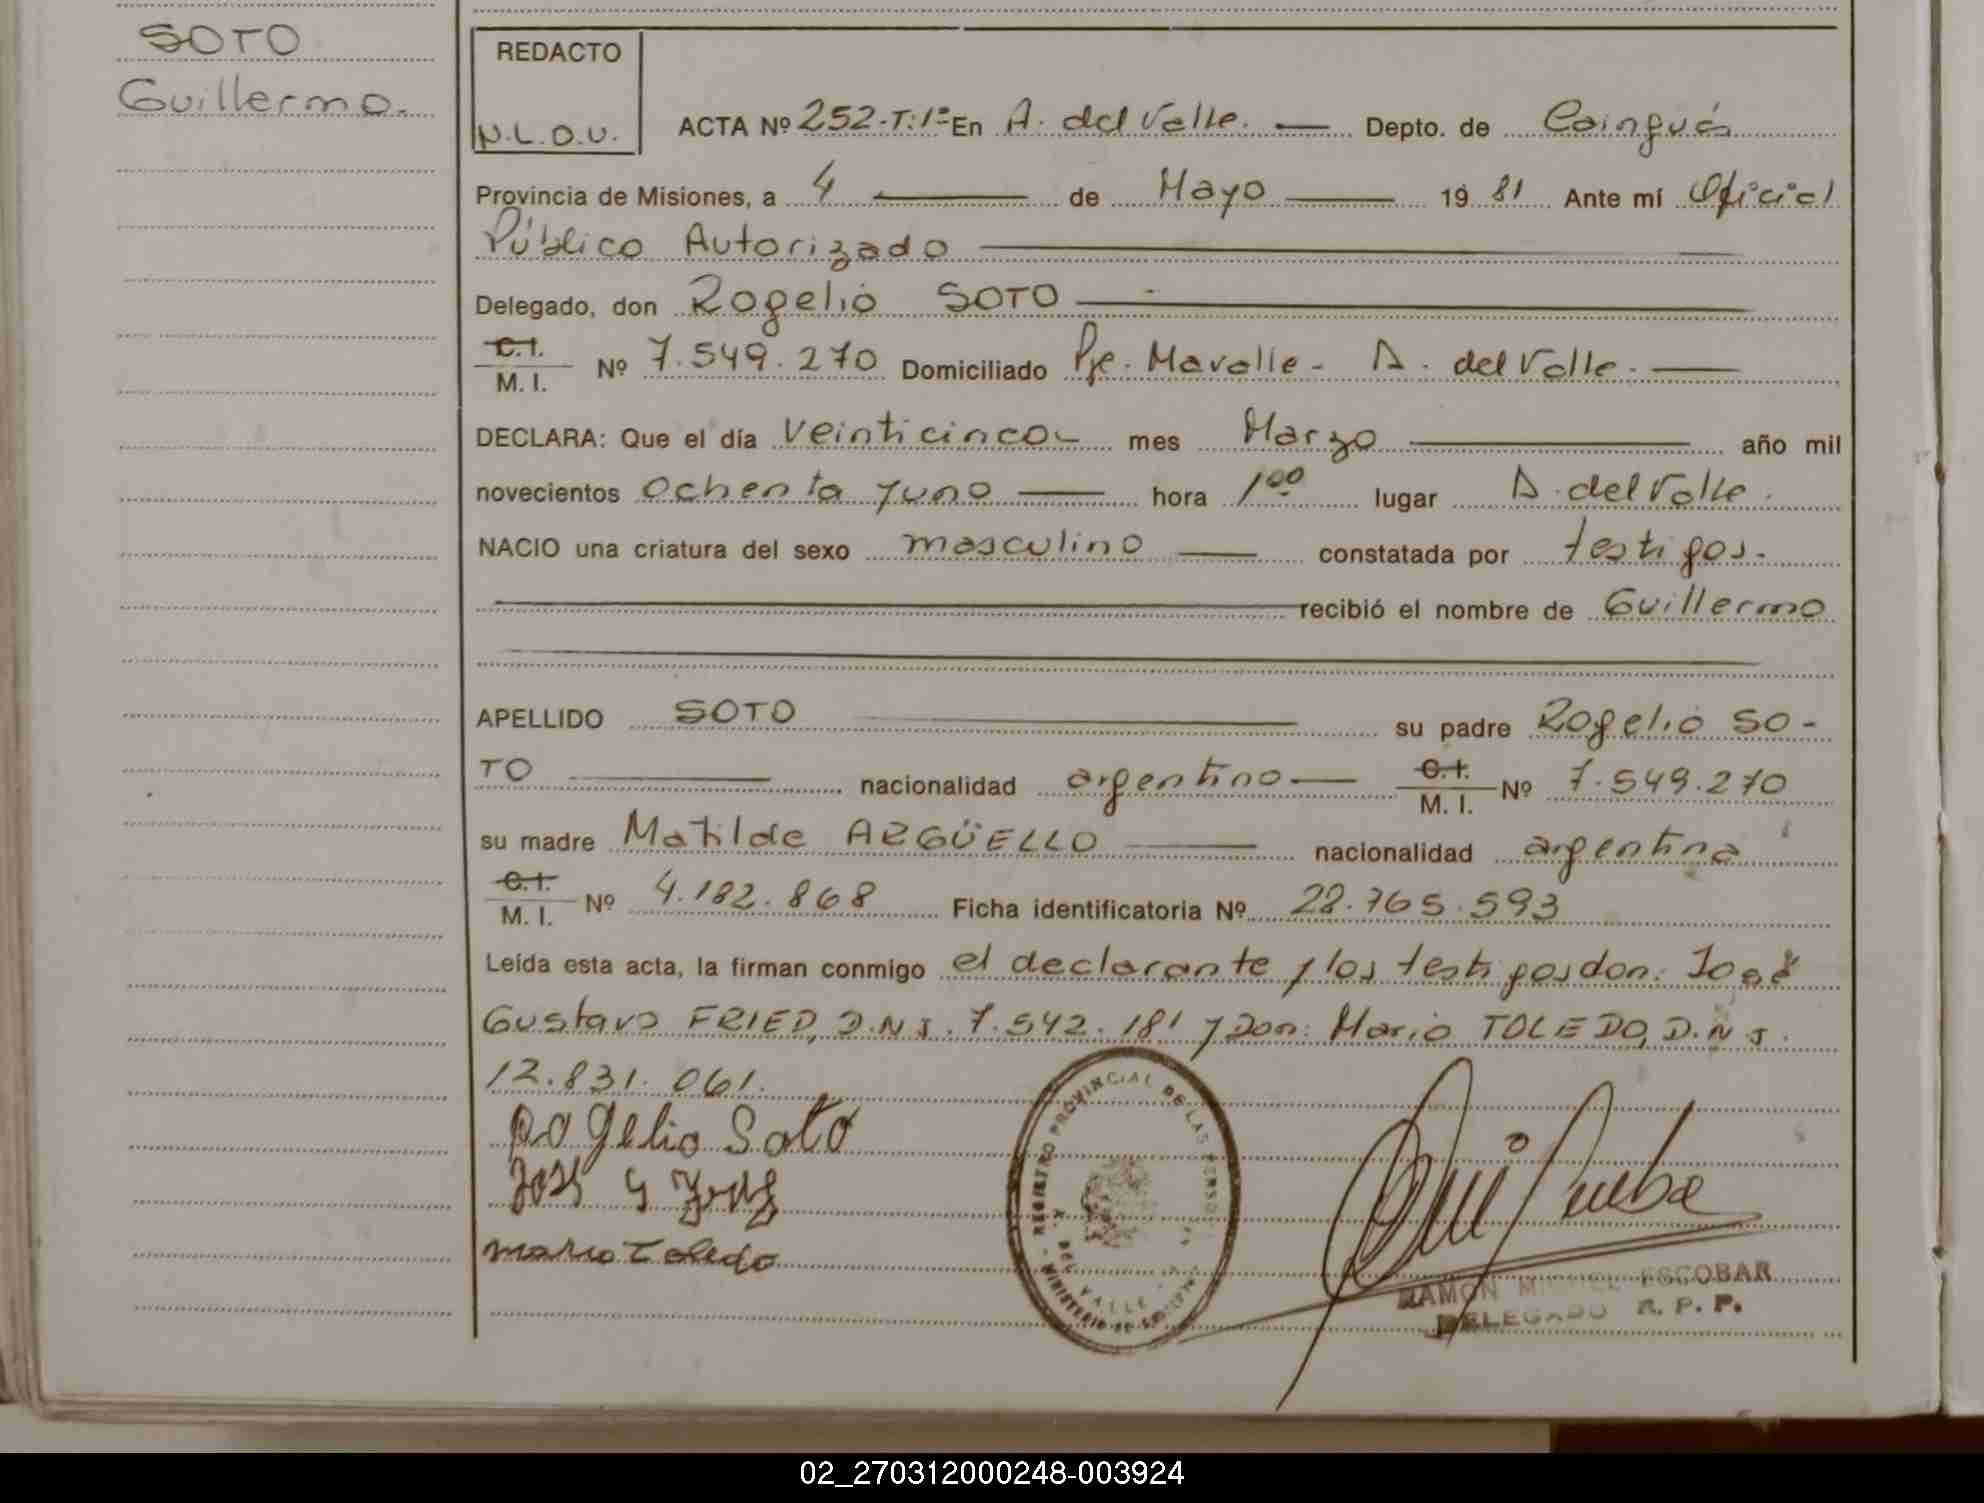 SOTO
Guillermo.
REDACTO
N.L.O.U.
ACTA Nº 252-T:1º En A. del Valle. — Depto. de Cainguás
Provincia de Misiones, a 4 — de Mayo — 1981 Ante mí Oficial
Público Autorizado
Delegado, don Rogelio SOTO
C.I. / M. I. Nº 7.549.270 Domiciliado Pje. Mavalle - A. del Valle.
DECLARA: Que el día veinticinco mes Marzo año mil
novecientos ochenta y uno — hora 1⁰⁰ lugar A. del Valle.
NACIO una criatura del sexo masculino — constatada por testigos.
recibió el nombre de Guillermo
APELLIDO SOTO su padre Rogelio SO-
TO nacionalidad argentino — C.I. / M. I. Nº 7.549.270
su madre Matilde ARGÜELLO — nacionalidad argentina
C.I. / M. I. Nº 4.182.868 Ficha identificatoria Nº 28.765.593
Leída esta acta, la firman conmigo el declarante y los testigos don: José
Gustavo FRIED, D.N.I. 7.542.181 y Don: Mario TOLEDO, D.N.I.
12.831.061.
Rogelio Soto
José G
Mario Toledo
REGISTRO PROVINCIAL DE LAS PERSONAS
A. DEL VALLE
MINISTERIO DE
RAMON MIGUEL ESCOBAR
DELEGADO R. P. P.
02_270312000248-003924